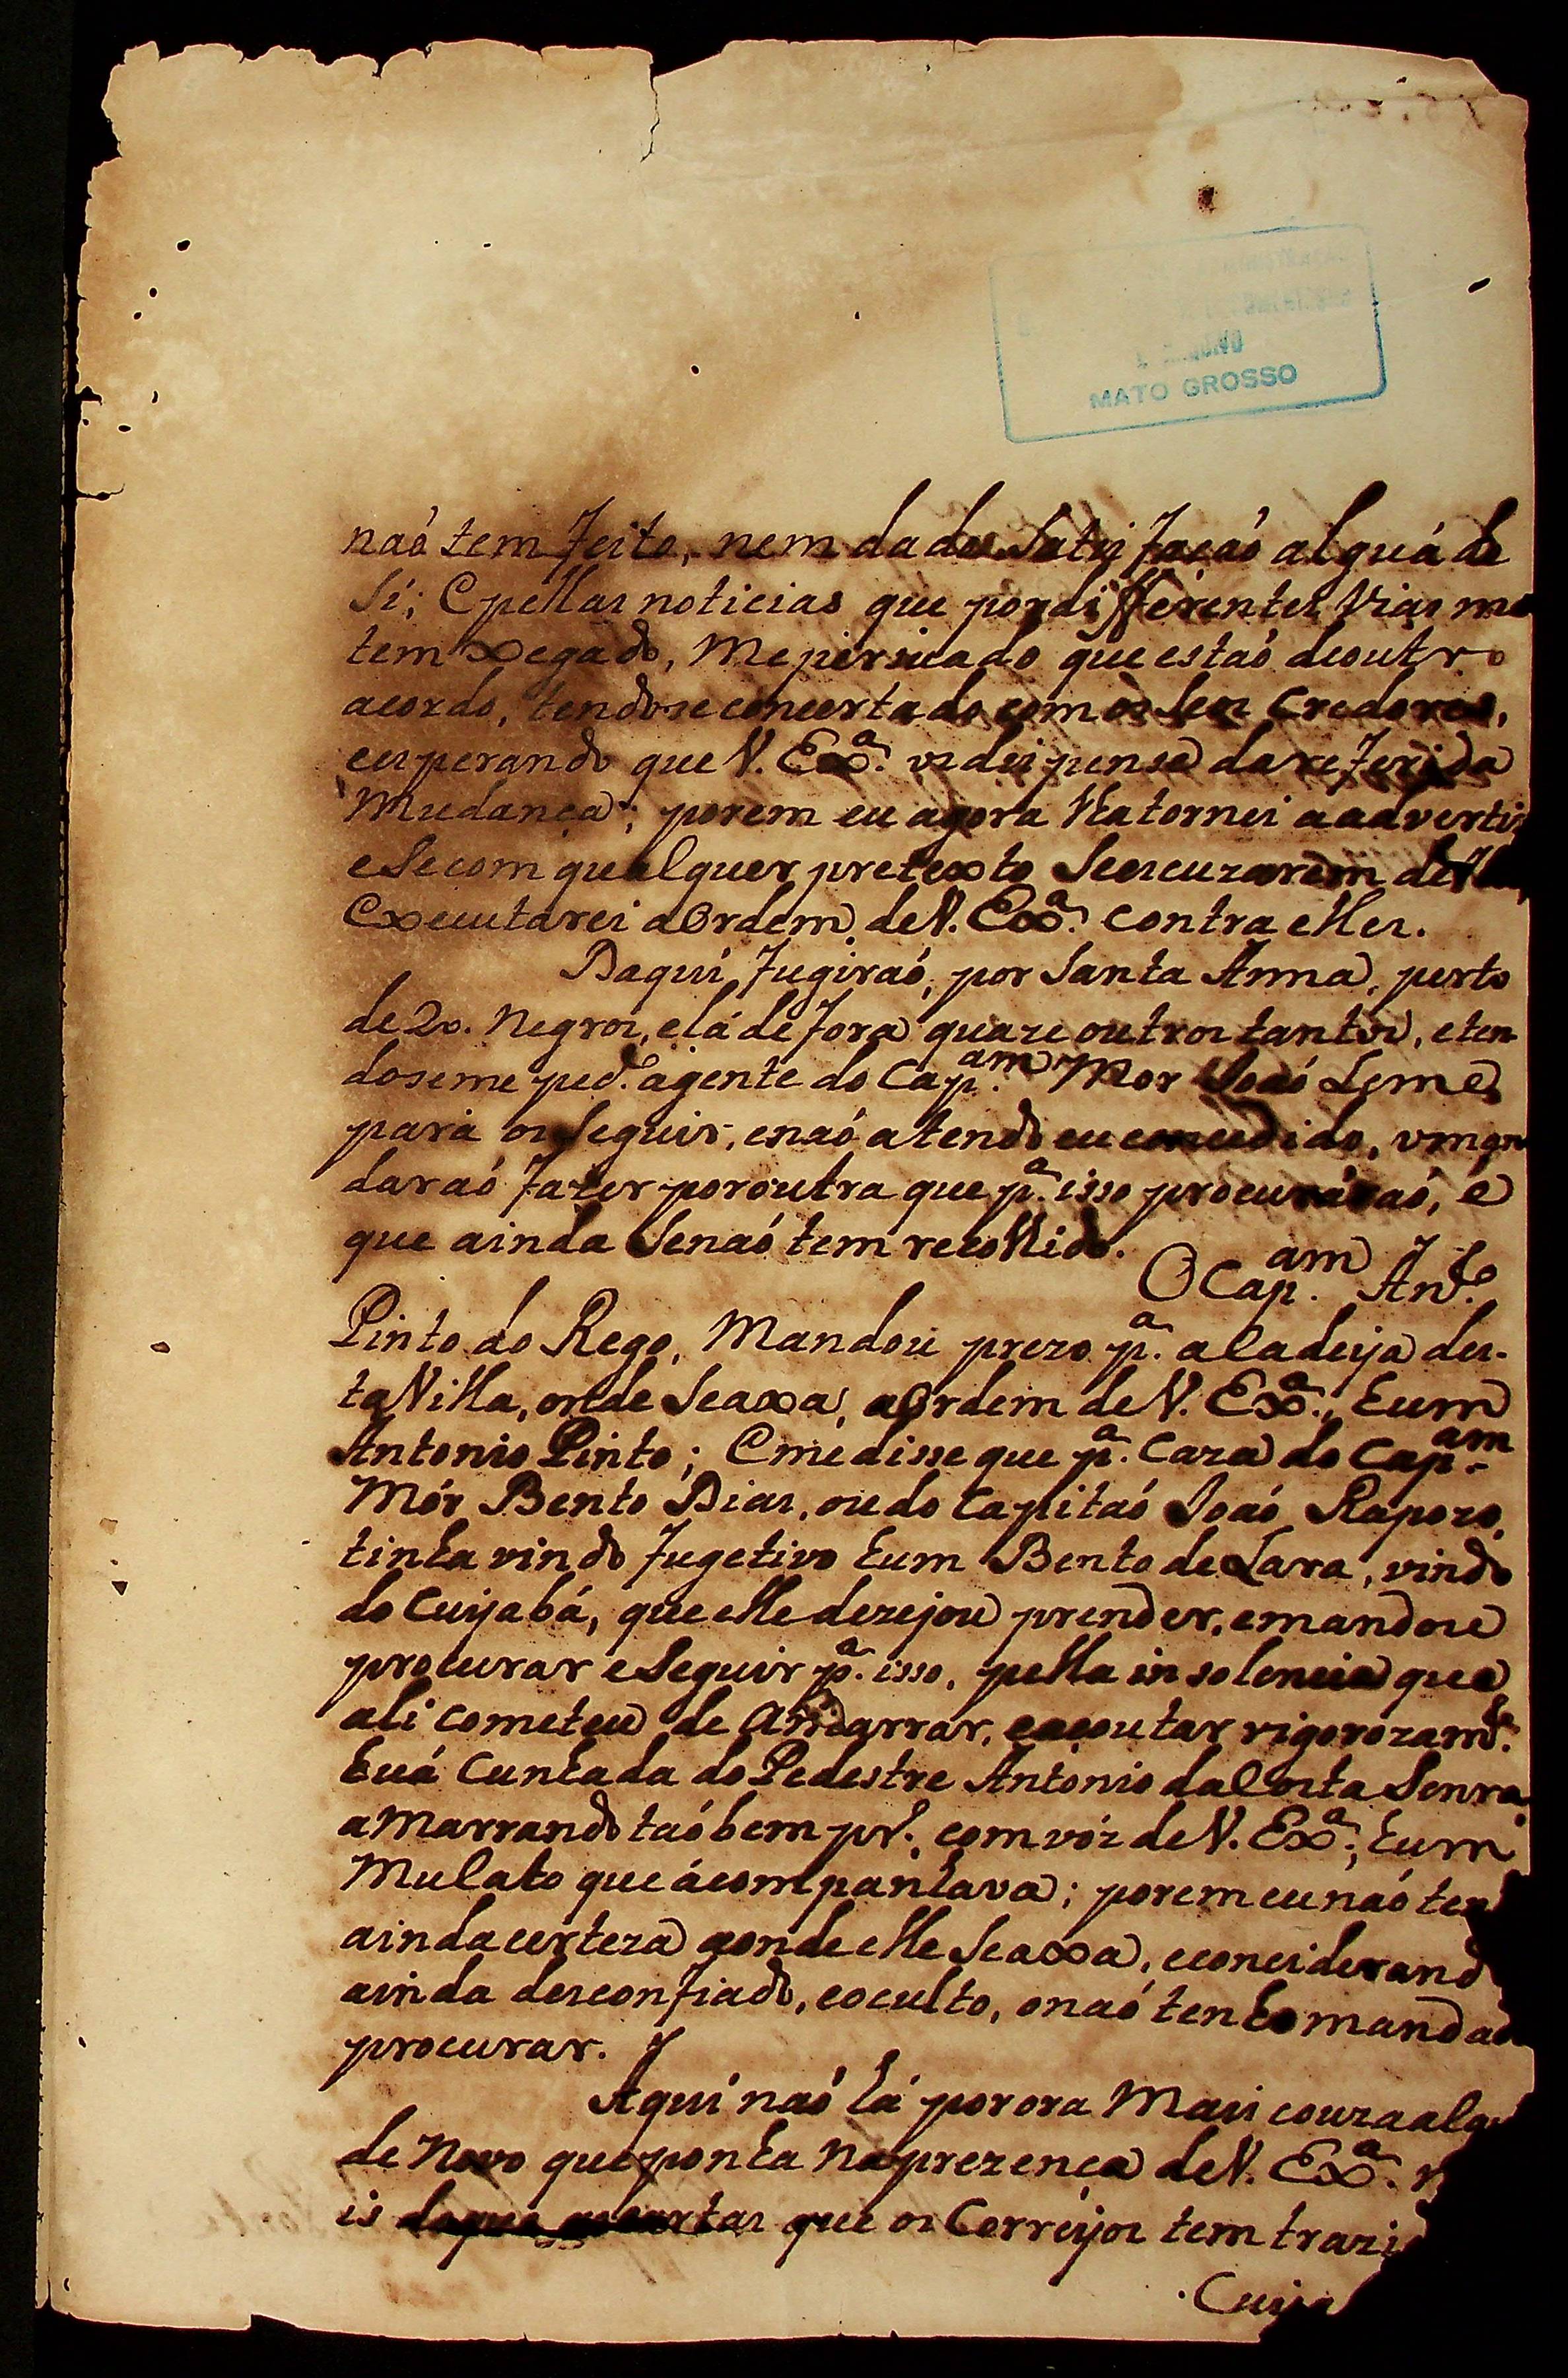 MATO GROSSO
naó tem feito, nem dado Satisfacaó alguá de
Si; E pellas noticias que por differentes Vias me
tem xegado, Me persuado que estaó de outro
acordo, tendose concertado com os Seos Credores,
eesperando que V. Exª. os dispense da referida
Mudança; porem eu agora lha tornei a advertir
e Se com qualquer pretexto Se escuzarem
Executarei a Ordem de V. Exª. contra elles.
Daqui fugiraó, por Santa Anna, perto
de 20. Negros, e lá de fora quaze outros tantos, e ten
dose me pedº. agente do Cap.am Mor Joaó Leme
para os Seguir, e naó atendo eu concedido,
daraó fazer por outra que pª. isso procuráraó, e
que ainda Senaó tem recolhido.
O Cap.am Antº.
Pinto do Rego, Mandou prezo pª. a Cadeya des-
ta Villa, onde Se axa, a Ordem de V. Exª., hum
Antonio Pinto; E me disse que pª. Caza do Cap.am
Mór Bento Dias, ou do Capitaó Joaó Rapozo,
tinha vindo fugetivo hum Bento de Lara, vindo
do Cuyabá, que elle dezejou prender, e mandou
procurar e Seguir pª. isso, pella insolencia que
ali cometeu de Amarrar, e acoutar rigorozamte.
huá Cunhada do Pedestre Antonio da Costa Senra
a Marrando taóbem com vóz de V. Exª., hum
Mulato que á companhava; porem eu naó ten
ainda certeza aonde elle Se axa, econciderand
ainda desconfiado, e oculto, o naó tenho mandad
procurar.
Aqui naó há por ora Mais couza algu
de Novo que ponha Na prezenca de V. Exª.
is do que as cartas que os Correyos tem trazi
Cuya